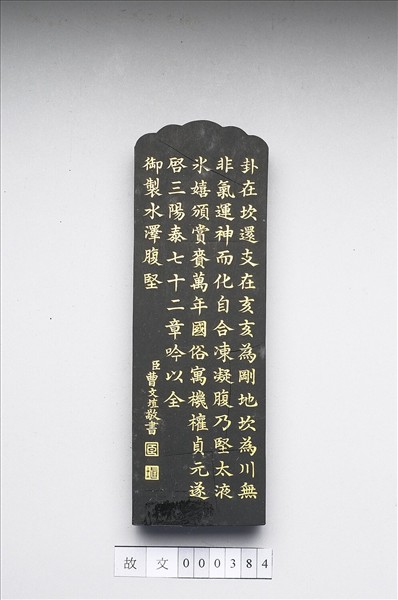 卦在坎還支在亥亥為剛地坎為川無
非氣運神而化自合凍凝腹乃堅太液
氷嬉頒賞賚萬年國俗寓機權貞元遂
啓三陽泰七十二章吟以全
御製水澤腹堅
臣曹文埴敬書
臣
埴
故文000384